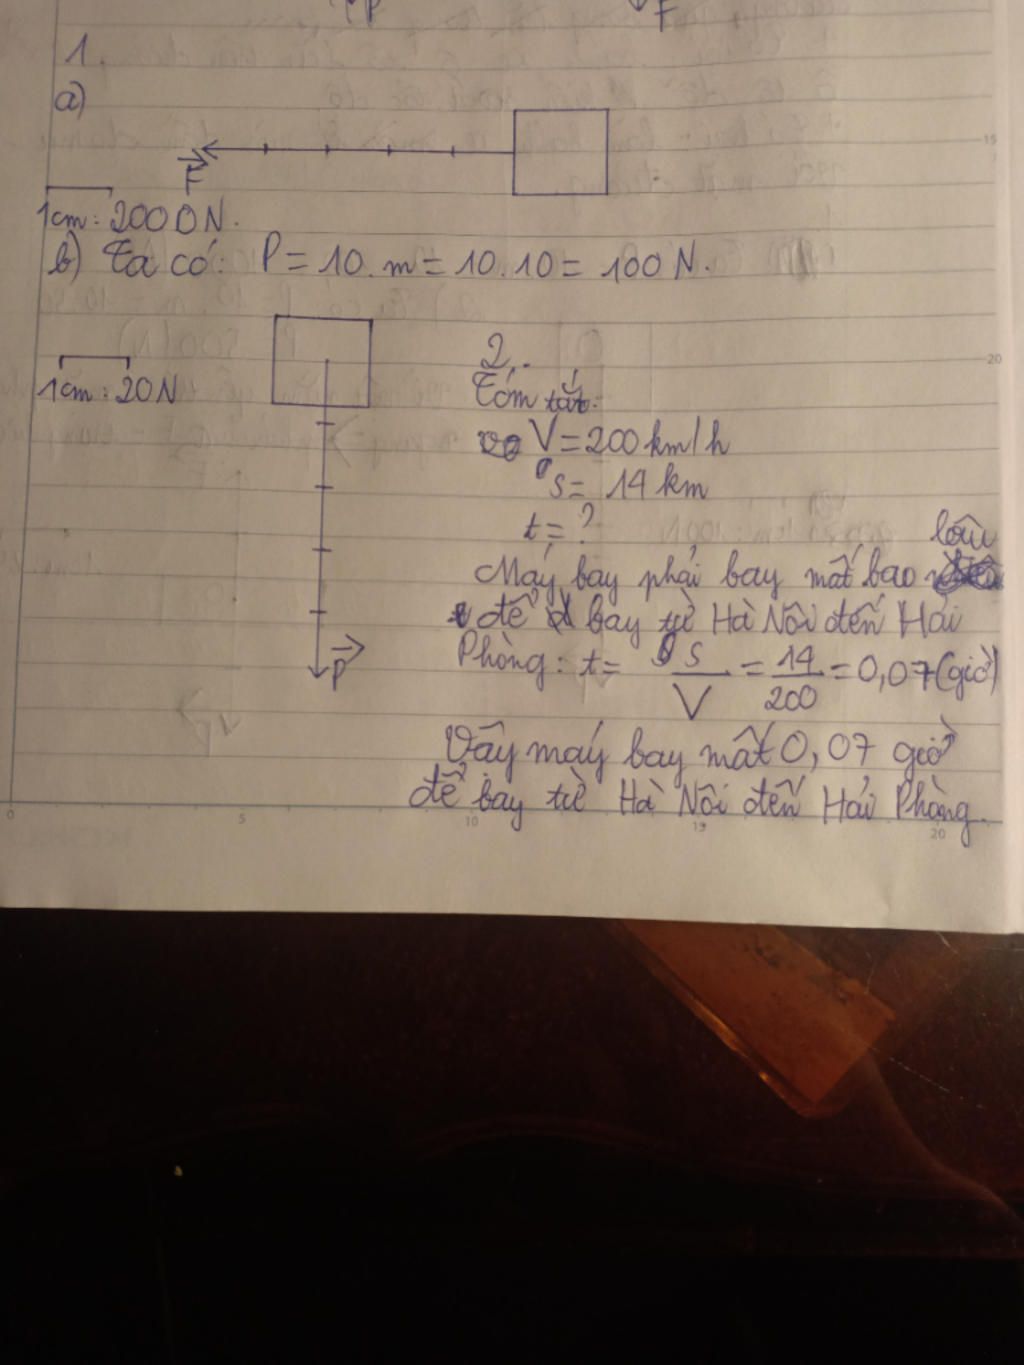 P F
1.
a)
F
1cm: 2000N.
b) Ta có: P = 10.m = 10.10 = 100 N.
1cm: 20N
P
2,.
Tóm tắt:
V = 200 km/h
s = 14 km
t = ?
lâu
Máy bay phải bay mất bao
để bay từ Hà Nội đến Hải
Phòng: t = s/V = 14/200 = 0,07 (giờ)
Vậy máy bay mất 0,07 giờ
để bay từ Hà Nội đến Hải Phòng.
15
20
0 5 10 15 20